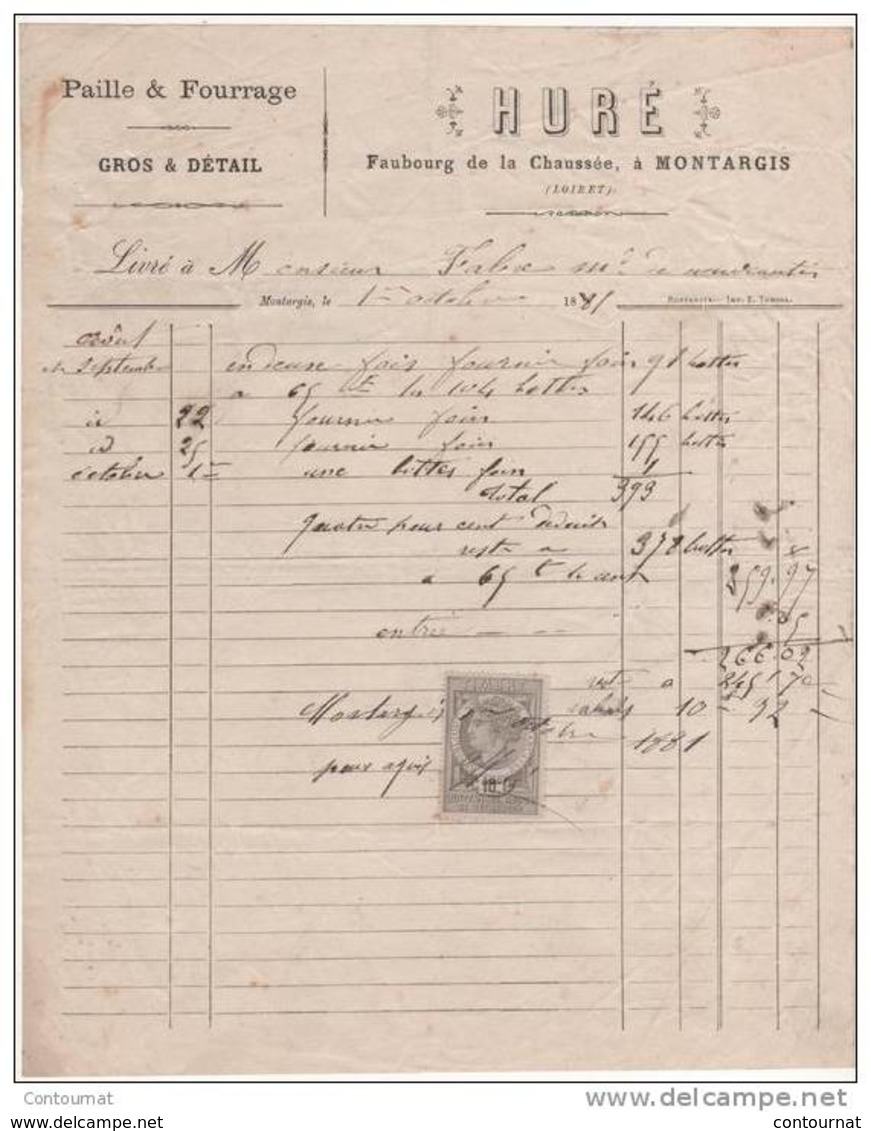 Paille & Fourrage
GROS & DÉTAIL
HURÉ
Faubourg de la Chaussée, à MONTARGIS
(LOIRET)
Livré à Monsieur md de
Montargis, le 1er octobre 1881
août
septembre en deuse fois fournir foin 91 bottes
a 65 f les 104 bottes
id 22 fournir foin 146 bottes
id 25 fournir foin 155 bottes
octobre 1er une bottes foin 1
total 393
quatre pour cent déduit
reste a 378 bottes
a 65 f le cent
entrée
266.02
reste a 245 70
10 92
Montargis octobre 1881
pour aquit
10 c
Contournat
www.delcampe.net
www.mon-livre.fr
contournat